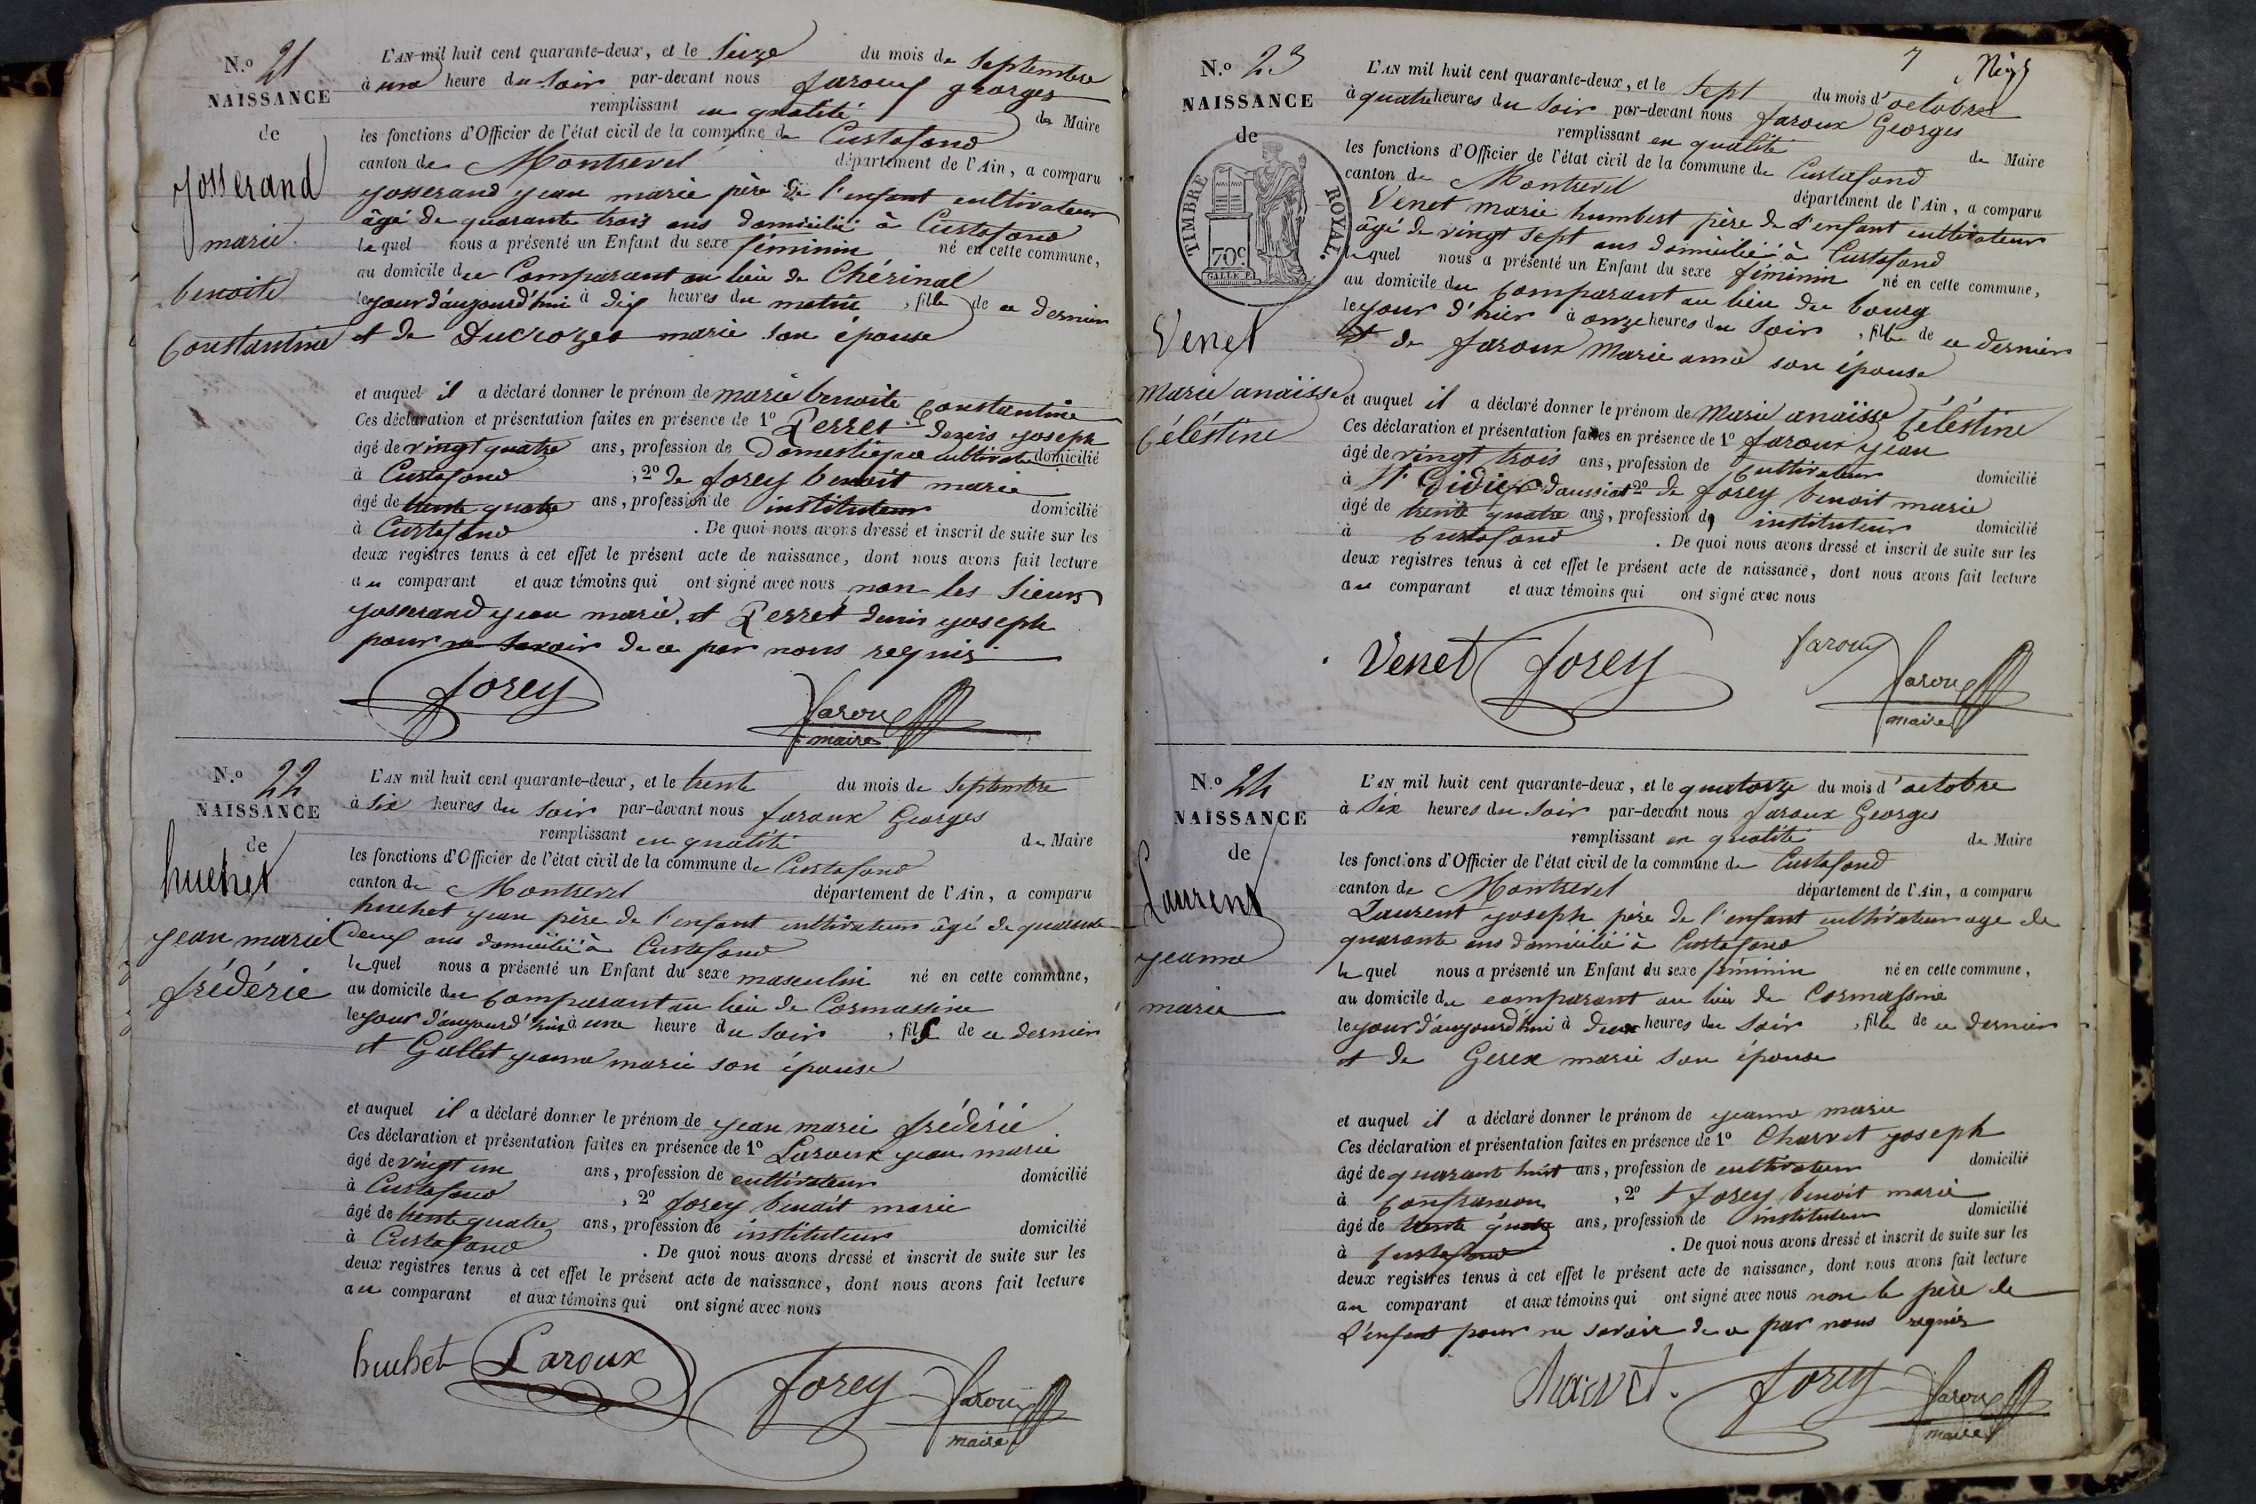 N.o 21
NAISSANCE
de
Josserand
marie
benoite
Constantine
L'AN mil huit cent quarante-deux, et le Seize du mois de Septembre
à une heure du Soir par-devant nous faroux georges
remplissant en qualité de Maire
les fonctions d'Officier de l'état civil de la commune de Curtafond
canton de Montrevel département de l'Ain, a comparu
Josserand jean marie père de l'enfant cultivateur
âgé de quarante trois ans domicilié à Curtafond
lequel nous a présenté un Enfant du sexe féminin né en cette commune,
au domicile du Comparant au lieu de Chérinal
le jour d'aujourd'hui à dix heures du matin, fille de ce dernier
et de Ducrozet marie son épouse
et auquel il a déclaré donner le prénom de marie benoite Constantine
Ces déclaration et présentation faites en présence de 1o Perret denis joseph
âgé de vingt quatre ans, profession de Domestique cultivate domicilié
à Curtafond, 2o de forey benoit marie
âgé de trente quatre ans, profession de instituteur domicilié
à Curtafond. De quoi nous avons dressé et inscrit de suite sur les
deux registres tenus à cet effet le présent acte de naissance, dont nous avons fait lecture
au comparant et aux témoins qui ont signé avec nous non les Sieurs
josserand jean marie, et Perret denis joseph
pour ne savoir de ce par nous requis
forey
faroux
maire
N.o 22
NAISSANCE
de
huchet
jean marie
frédéric
L'AN mil huit cent quarante-deux, et le trente du mois de Septembre
à Six heures du Soir par-devant nous faroux Georges
remplissant en qualité de Maire
les fonctions d'Officier de l'état civil de la commune de Curtafond
canton de Montrevel département de l'Ain, a comparu
huchet jean père de l'enfant cultivateur âgé de quarante
deux ans domicilié à Curtafond
lequel nous a présenté un Enfant du sexe masculin né en cette commune,
au domicile du Comparant au lieu de Cormassine
le jour d'aujourd'hui à une heure du Soir, fils de ce dernier
et Gallet jeanne marie son épouse
et auquel il a déclaré donner le prénom de jean marie frédéric
Ces déclaration et présentation faites en présence de 1o Laroux jean marie
âgé de vingt un ans, profession de cultivateur domicilié
à Curtafond, 2o forey benoit marie
âgé de trente quatre ans, profession de instituteur domicilié
à Curtafond. De quoi nous avons dressé et inscrit de suite sur les
deux registres tenus à cet effet le présent acte de naissance, dont nous avons fait lecture
au comparant et aux témoins qui ont signé avec nous
huchet Laroux forey faroux
maire
7
N.o 23
NAISSANCE
de
TIMBRE ROYAL.
70c
Venet
Marie anaïsse
Céléstine
L'AN mil huit cent quarante-deux, et le Sept du mois d'octobre
à quatre heures du Soir par-devant nous faroux Georges
remplissant en qualité de Maire
les fonctions d'Officier de l'état civil de la commune de Curtafond
canton de Montrevel département de l'Ain, a comparu
Venet marie humbert père de l'enfant cultivateur
âgé de vingt sept ans domicilié à Curtafond
lequel nous a présenté un Enfant du sexe féminin né en cette commune,
au domicile du Comparant au lieu du bourg
le jour d'hier à onze heures du Soir, fille de ce dernier
et de faroux Marie anne son épouse
et auquel il a déclaré donner le prénom de Marie anaïsse Céléstine
Ces déclaration et présentation faites en présence de 1o faroux jean
âgé de vingt trois ans, profession de Cultivateur domicilié
à St Didier daussiat 2o de forey benoit marie
âgé de trente quatre ans, profession de instituteur domicilié
à Curtafond. De quoi nous avons dressé et inscrit de suite sur les
deux registres tenus à cet effet le présent acte de naissance, dont nous avons fait lecture
au comparant et aux témoins qui ont signé avec nous
Venet forey faroux
faroux
maire
N.o 24
NAISSANCE
de
Laurent
jeanne
marie
L'AN mil huit cent quarante-deux, et le quatorze du mois d'octobre
à Six heures du Soir par-devant nous faroux Georges
remplissant en qualité de Maire
les fonctions d'Officier de l'état civil de la commune de Curtafond
canton de Montrevel département de l'Ain, a comparu
Laurent joseph père de l'enfant cultivateur age de
quarante ans domicilié à Curtafond
lequel nous a présenté un Enfant du sexe féminin né en cette commune,
au domicile du comparant au lieu de Cormassine
le jour d'aujourd'hui à deux heures du Soir, fille de ce dernier
et de Gerex marie son épouse
et auquel il a déclaré donner le prénom de jeanne marie
Ces déclaration et présentation faites en présence de 1o Charvet joseph
âgé de quarant huit ans, profession de cultivateur domicilié
à Confrancon, 2o et forey benoit marie
âgé de trente quatre ans, profession de instituteur domicilié
à Curtafond. De quoi nous avons dressé et inscrit de suite sur les
deux registres tenus à cet effet le présent acte de naissance, dont nous avons fait lecture
au comparant et aux témoins qui ont signé avec nous non le père de
L'enfant pour ne savoir de ce par nous requis
Charvet. forey faroux
maire